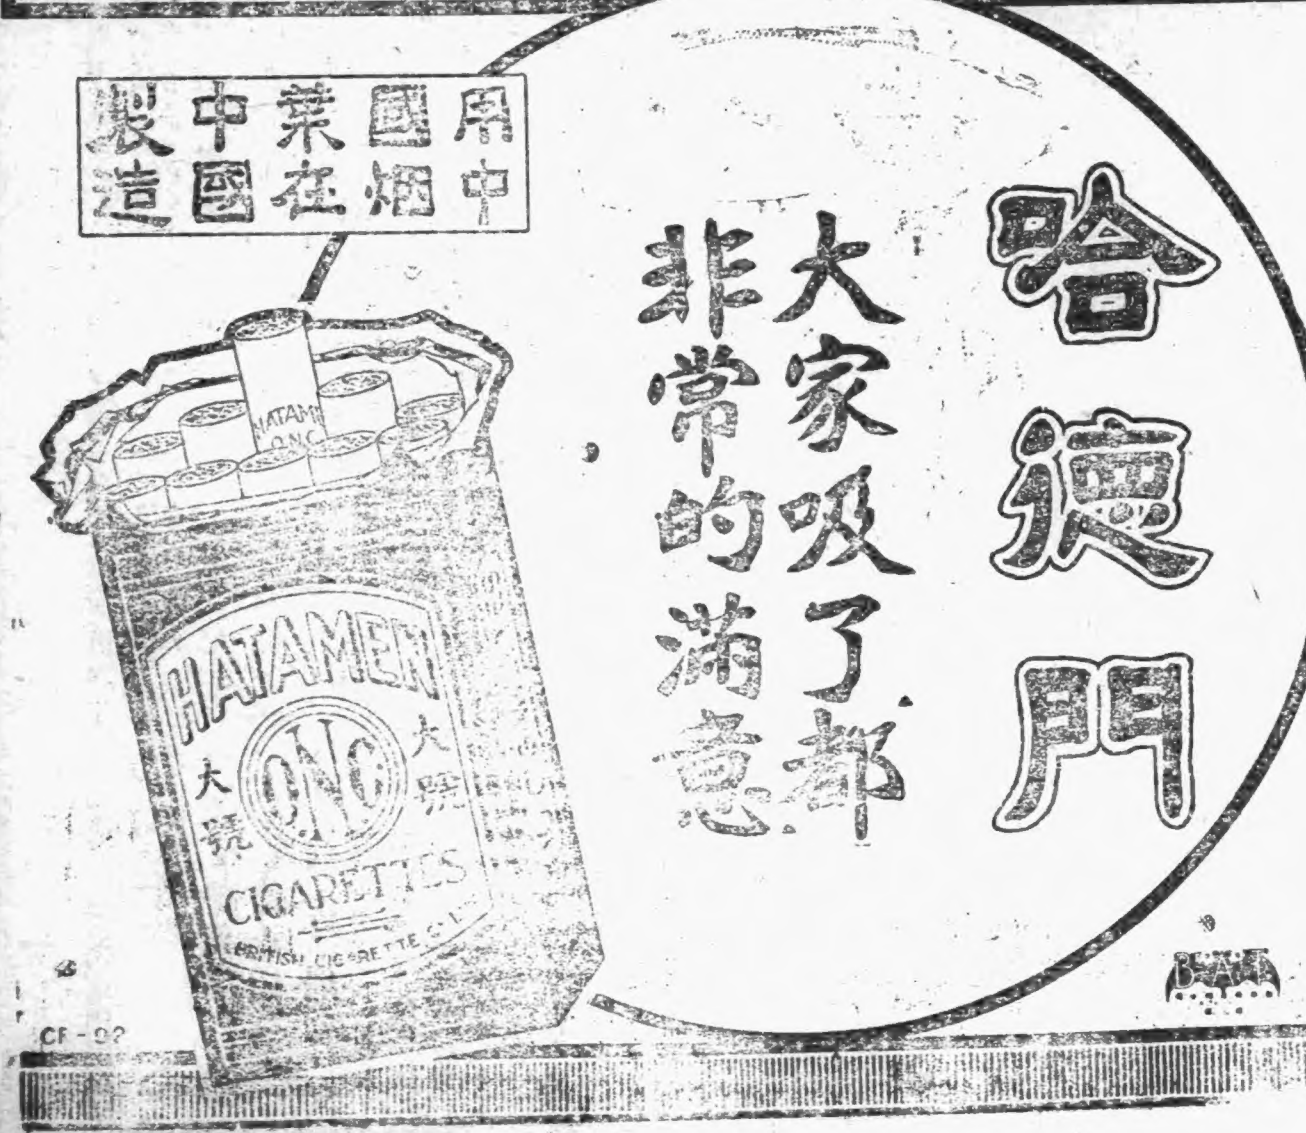 哈德門
大家吸了都
非常的滿意
用中
國烟
葉在
中國
製造
HATAMEN
O.N.C
HATAMEN
大號
ONC
大號
CIGARETTES
BRITISH CIGARETTE
B.A.T
CF-92